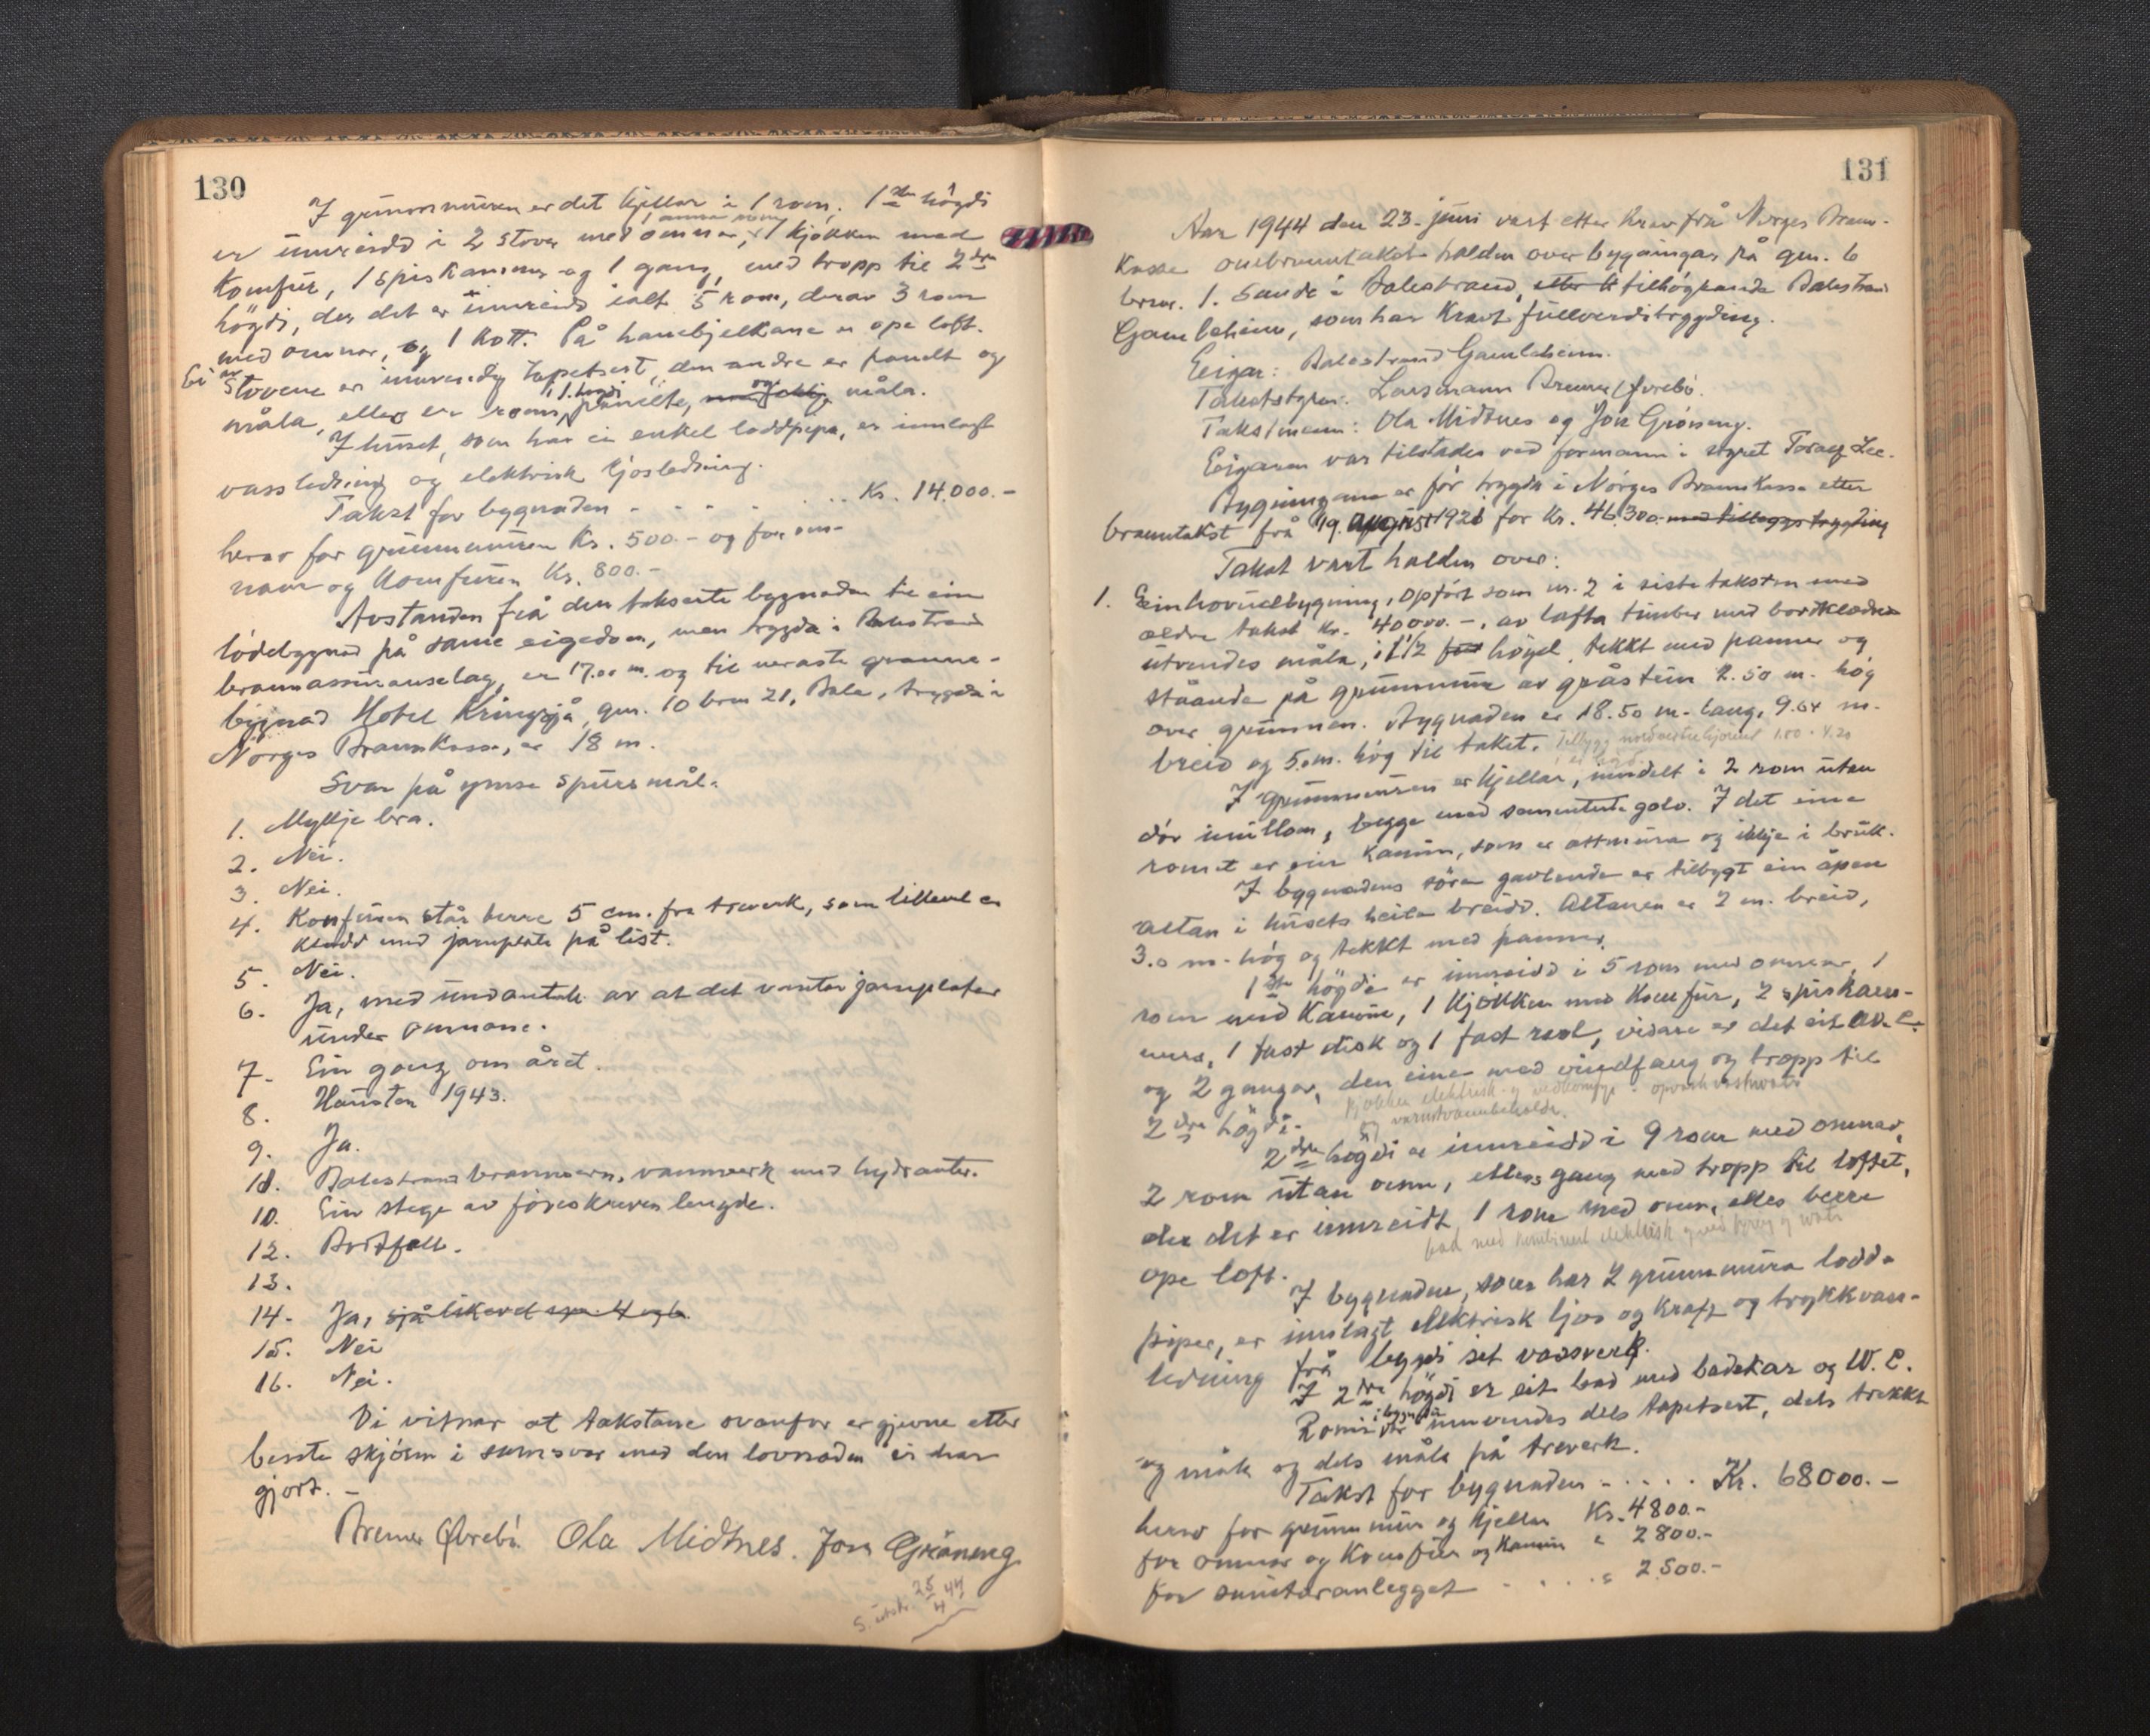 130
I grunnmuren er det kjellar i 1 rom. 1ste högdi
1 anna rom
er innreidd i 2 stover med omnar, 1 kjøkken med
komfur, 1 spiskammer og 1 gang, med tropp til 2dre
högdi, der det er innreidd ialt 5 rom, derav 3 rom
med omnar, og 1 kott. På hanebjelkane er ope loft.
Ei av stovene er innvendig tapetsert, den andre er panelt og
måla, elles er romi i 1. høgdi panelte, og måla.
I huset, som har ein enkel loddpipa, er innlagt
vassledning og elektrisk ljosledning.
Takst for bygnaden - - - - ... Kr. 14.000.-
herav for grunnmuren Kr. 500.- og for om-
nane og komfuren Kr. 800.-
Avstanden frå den takserte bygnaden til ein
lödebygnad på same eigedom, men trygda i Balestrand
brannassuranselag, er 17.00 m. og til neraste granne-
bygnad Hotel Kringsjå, gnr. 10 brn 21, Bale, trygda i
Norges Brannkasse, er 18 m.
Svar på ymse spursmål:
1. Mykje bra.
2. Nei.
3. Nei.
4. Komfuren står berre 5 cm. fra treverk, som likevel er
kledd med jarnplate på list.
5. Nei.
6. Ja, med undantak av at det vantar jarnplater
under omnane.
7. Ein gong om året.
8. Hausten 1943.
9. Ja.
10. Balestrand brannvern, vannverk med hydranter.
10. Ein stege av föreskreven lengde.
12. Bortfell.
13.
14. Ja, sjå likevel spm. 4 og 6.
15. Nei
16. Nei.
Vi vitnar at takstane ovanfor er gjevne etter
beste skjönn i samsvar med den lovnaden vi har
gjort. -
Bremer Øvrebö. Ola Midtnes. Jon Gröneng
S. utskr. 25/4 44
131
Aar 1944 den 23. juni vart etter krav frå Norges Brann-
kasse ombranntakst halden over bygningar på gnr. 6
brnr. 1. Sande i Balestrand, tilhøyrande Balestrand
Gamleheim, som har kravt fullverditrygding.
Eigar: Balestrand Gamleheim.
Takststyrar: Lensmann Bremer Øvrebö.
Takstmenn: Ola Midtnes og Jon Gröneng.
Eigaren var tilstades ved formann i styret Toralf Lee.
Bygningane er för trygda i Norges Brannkasse etter
branntakst frå 19. august 1921 for Kr. 46.300.- med tilleggstrygding
Takst vart halden over:
1. Ein hovudbygning, opfört som nr. 2 i siste taksten med
eldre takst Kr. 40000.-, av lafta timber med bordklædnad
utvendes måla, i 1 1/2 högd, tekkt med panner og
ståande på grunnmur av gråstein 2.50 m. høg
over grunnen. Bygnaden er 18.50 m. lang, 9.64 m.
breid og 5.0 m. hög til taket. Tilbygg nordvestre hjørnet 1.80 . 4.20
I grunnmuren er kjellar, inndelt i 2 rom utan
dör imillom, begge med sementerte golv. I det eine
romet er ein kamin, som er attmura og ikkje i bruk.
I bygnadens söre gavlende er tilbygt ein åpen
altan i husets heile breidd. Altanen er 2 m. breid,
3.0 m. høg og tekkt med panner.
1ste högdi er innreidd i 5 rom med omnar, 1
rom med kamin, 1 kjökken med komfur, 2 spiskam-
mers, 1 fast disk og 1 fast reol, vidare er det eit W.C.
og 2 gangar, den eine med vindfang og tropp til
2dre högdi.
kjøkken elektrisk og vedkomfyr. opvaskvask
og varmtvannbeholder.
2dre högdi er innreidd i 9 rom med omnar,
2 rom utan omn, elles gang med tropp til loftet,
der det er innreidt 1 rom med omn, elles berre
ope loft.
bad med kombinert elektrisk
I bygnaden, som har 2 grunnmura lodd-
piper, er innlagt elektrisk ljos og kraft og trykkvass-
ledning frå bygdi sit vassverk.
I 2dre högdi er eit bad med badekar og W.C.
Romi i bygnaden er innvendes dels tapetsert, dels trekkt
og måla og dels måla på treverk.
Takst for bygnaden - . . . . Kr. 68000.-
herav for grunnmur og kjellar Kr. 4800.-
for omnar og komfur og kamin " 2800.-
for sanitæranlegget - . . . . " 2.500.-